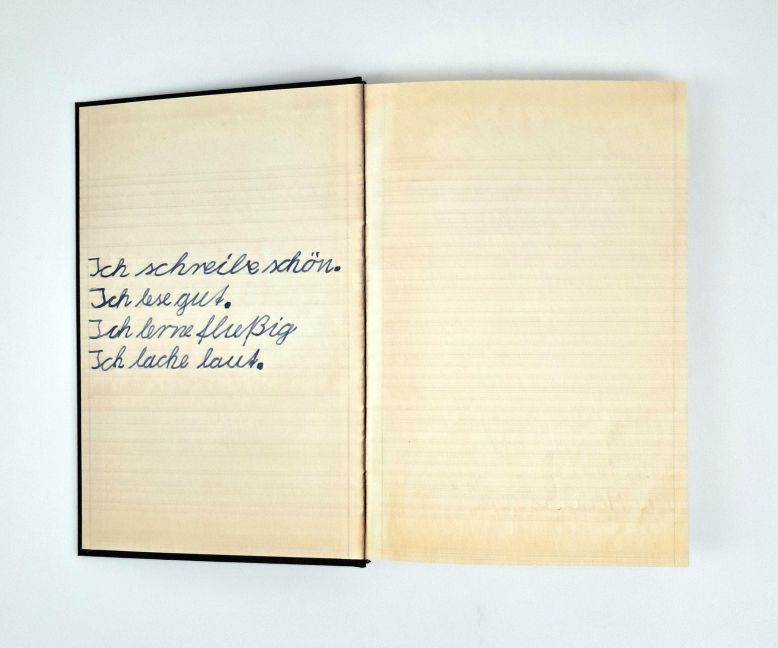 Ich schreibe schön.
Ich lese gut.
Ich lerne fließig
Ich lache laut.